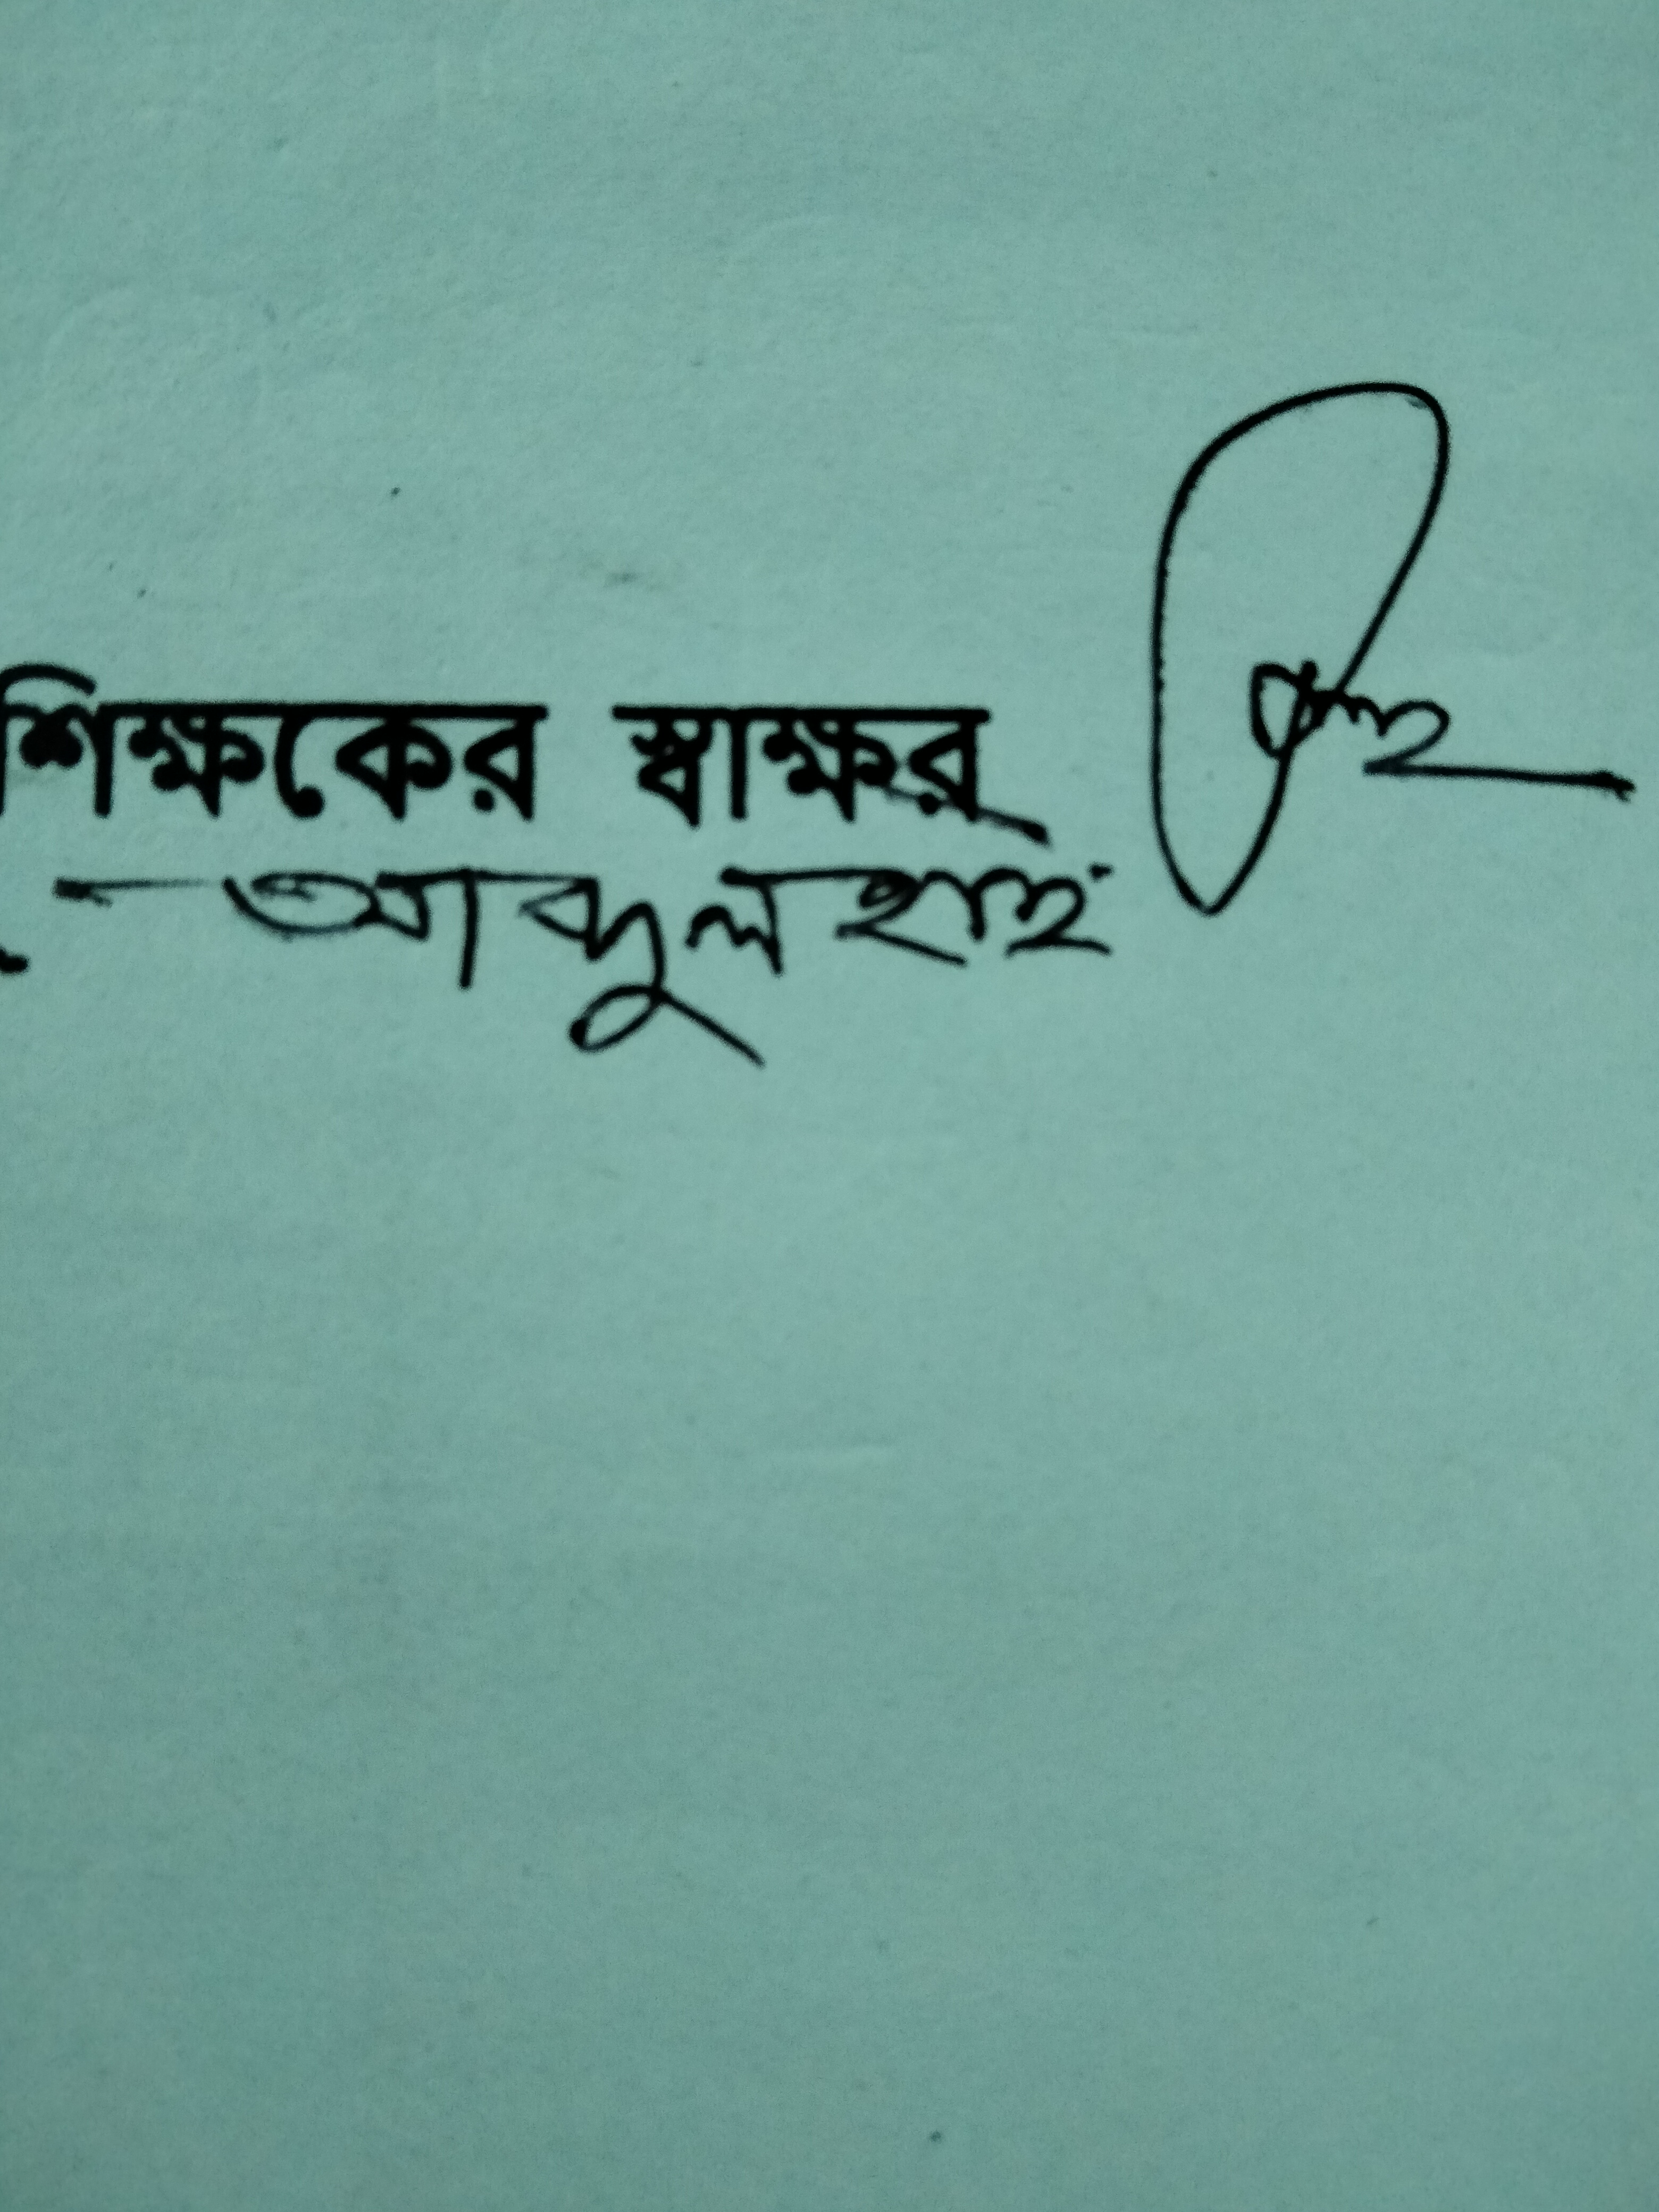 শিক্ষকের স্বাক্ষর
আব্দুল হাই